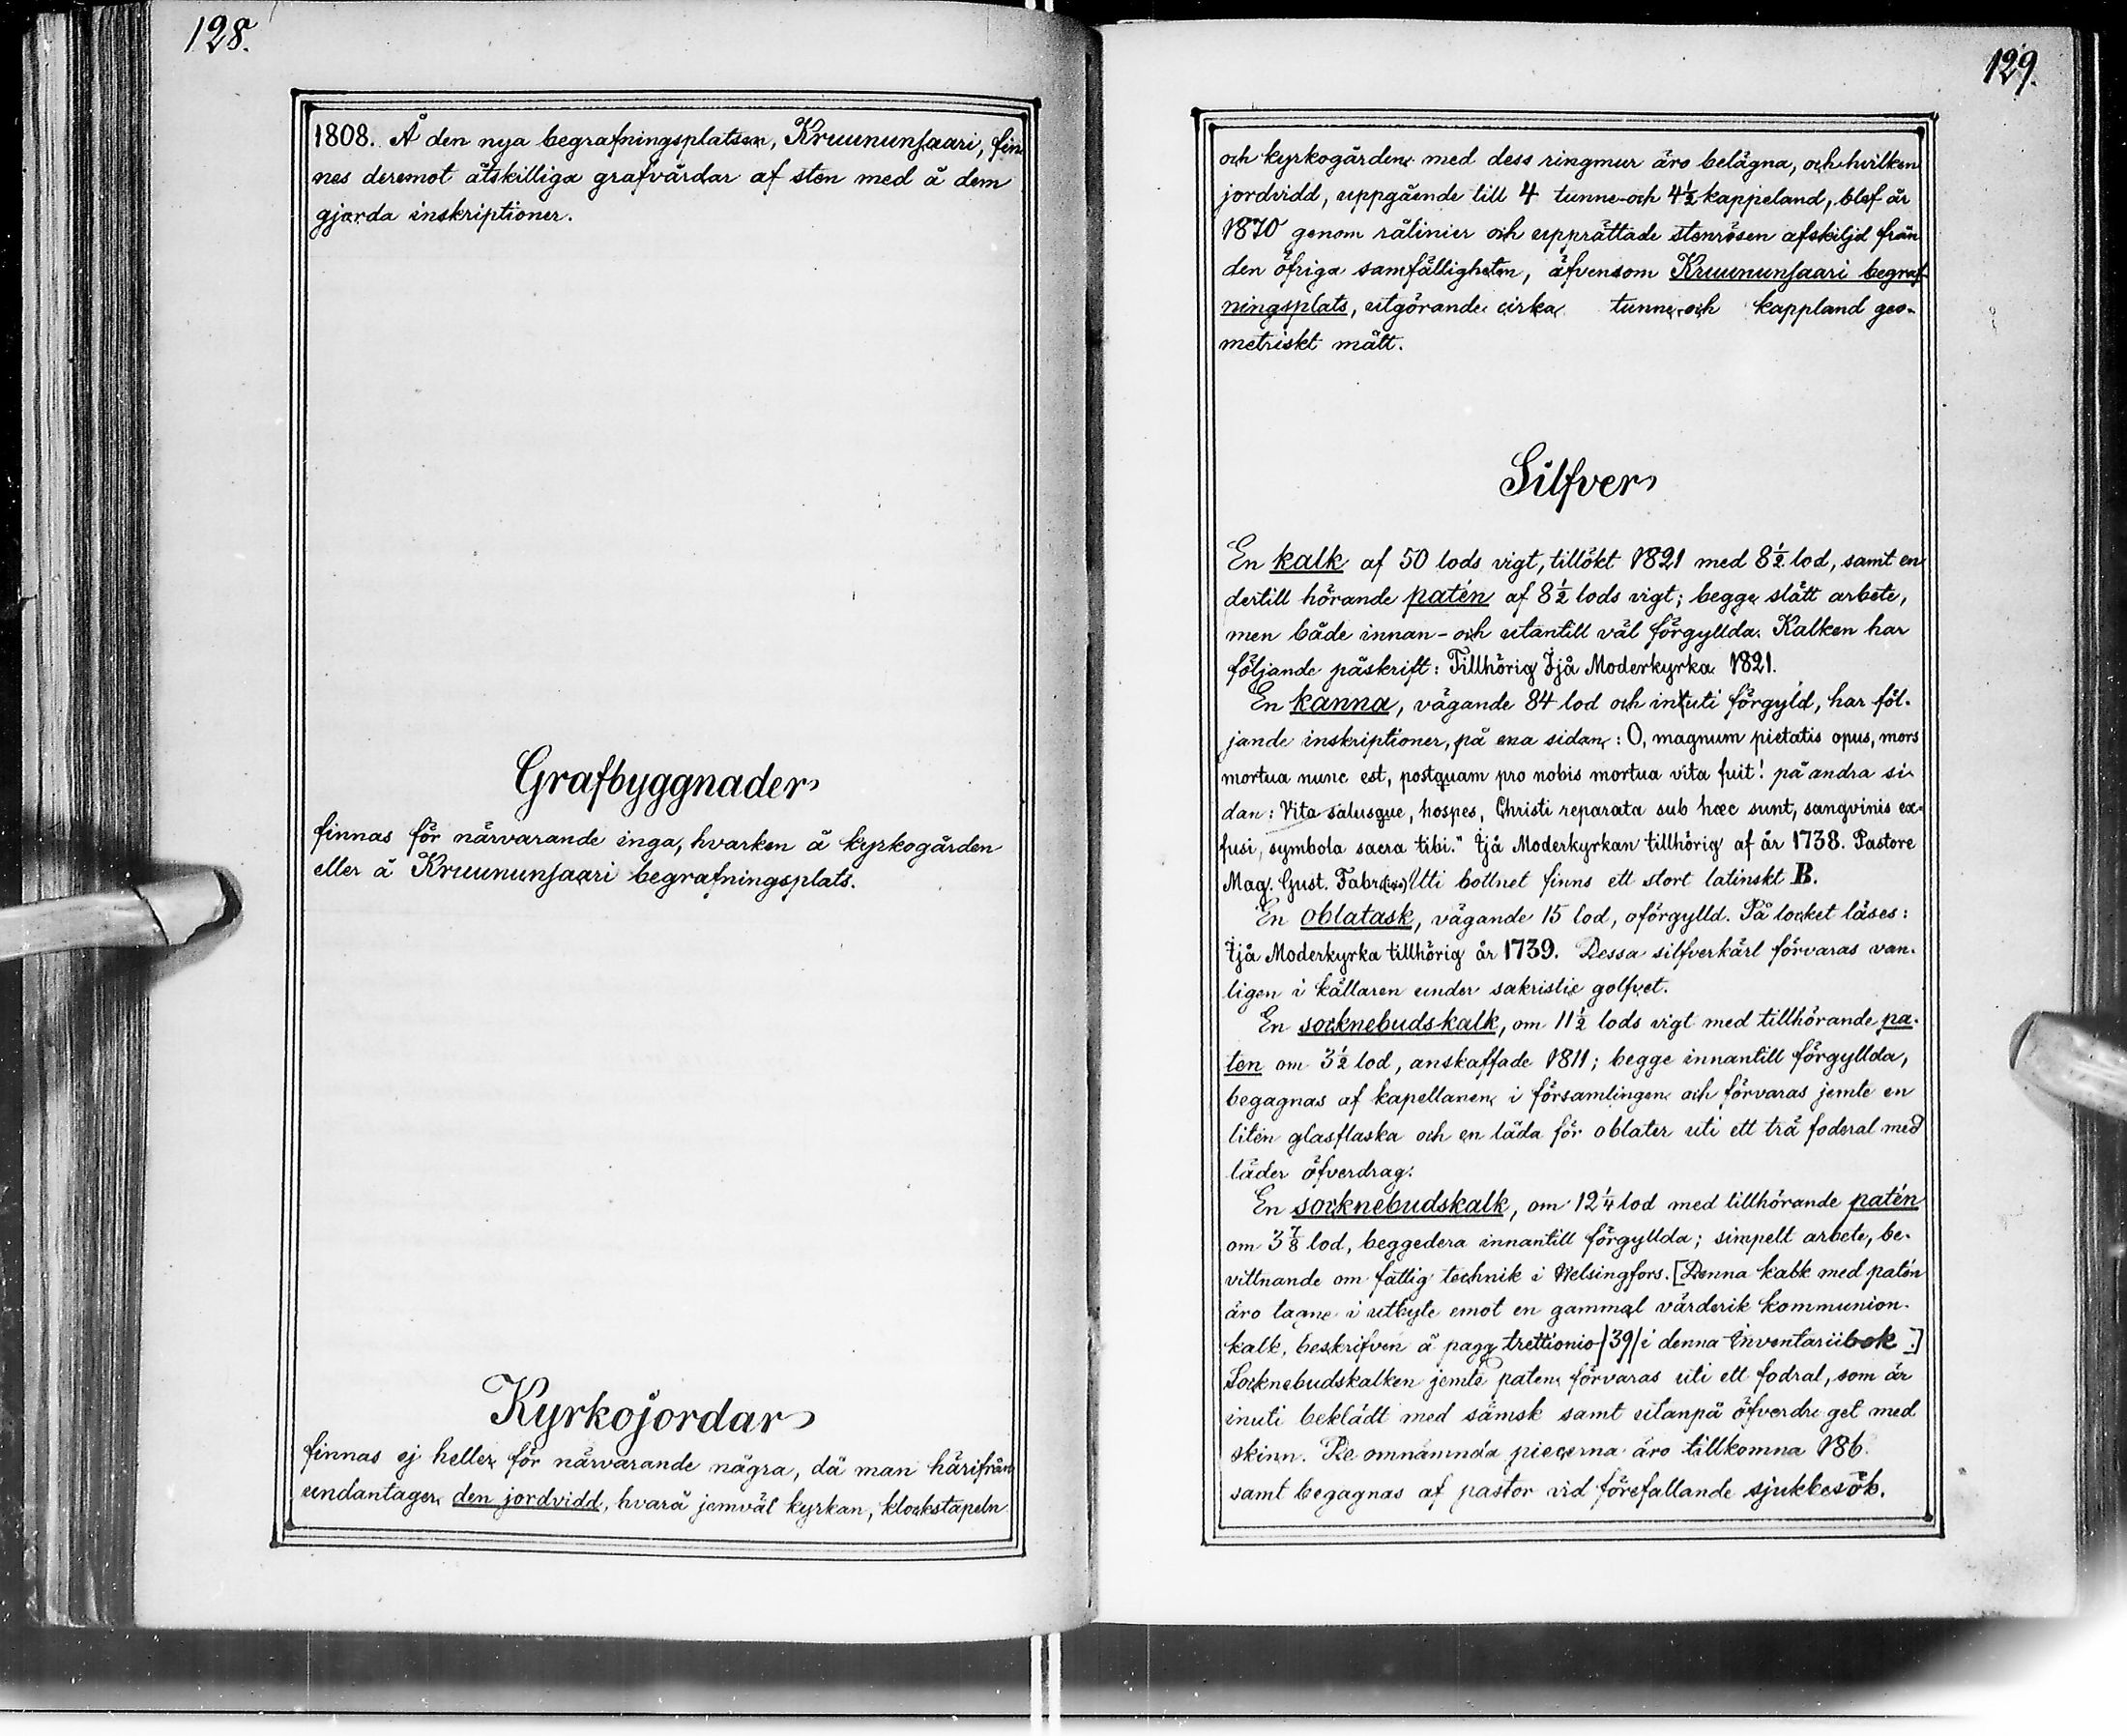 128.
1808. Å den nya begrafningsplatsen, Kruununsaari, fin
nes deremot åtskilliga grafvårdar af sten med å dem
gjorda inskriptioner.
Grafbyggnader
finnas för närvarande inga, hvarken å kyrkogården
eller å Kruununsaari begrafningsplats.
Kyrkojordar
finnas ej heller för närvarande några, då man härifrån
undantager den jordvidd, hvarå jemväl kyrkan, klockstapeln
129.
och kyrkogården med dess ringmur äro belägna, och hvilken
jordvidd, uppgående till 4 tunne-och 4½ kappeland, blef år
1870 genom rålinier och upprättade stenrösen afskiljd från
den öfriga samfälligheten, äfvensom Kruununsaari begraf-
ningsplats, utgörande cirka tunne-och kappland geo-
metriskt mått.
Silfver
En kalk af 50 lods vigt, tillökt 1821 med 8½ lod, samt en
dertill hörande patén af 8½ lods vigt; begge slätt arbete,
men både innan- och utantill väl förgyllda. Kalken har
följande påskrift: Tillhörig Ijå Moderkyrka 1821.
En kanna, vägande 84 lod och inuti förgyld, har föl-
jande inskriptioner, på ena sidan: O, magnum pietatis opus, mors
mortua nunc est, postquam pro nobis mortua vita fuit! på andra si-
dan: Vita salusque, hospes, Christi reparata sub hæc sunt, sangvinis ex-
fusi, symbola sacra tibi." Ijå Moderkyrkan tillhörig af år 1738. Pastore
Mag. Gust. Fabr. Uti bottnet finns ett stort latinskt B.
En oblatask, vägande 15 lod, oförgylld. På locket läses:
Ijå Moderkyrka tillhörig år 1739. Dessa silfverkärl förvaras van-
ligen i källaren under sakristie golfvet.
En socknebudskalk, om 11½ lods vigt med tillhörande pa-
ten om 3½ lod, anskaffade 1811; begge innantill förgyllda,
begagnas af kapellanen i församlingen och förvaras jemte en
liten glasflaska och en låda för oblater uti ett trä foderal med
läder öfverdrag.
En socknebudskalk, om 12¼ lod med tillhörande patén
om 3⅞ lod, beggedera innantill förgyllda; simpelt arbete, be-
vittnande om fattig technik i Helsingfors. [Denna kalk med patén
äro tagne i utbyte emot en gammal värderik kommunion-
kalk, beskrifven å pagg trettionio /39/ i denna Inventariibok.]
Socknebudskalken jemte paten förvaras uti ett fodral, som är
inuti beklädt med sämsk samt utanpå öfverdraget med
skinn. De omnämnda piecerna äro tillkomna 186
samt begagnas af pastor vid förefallande sjukbesök.